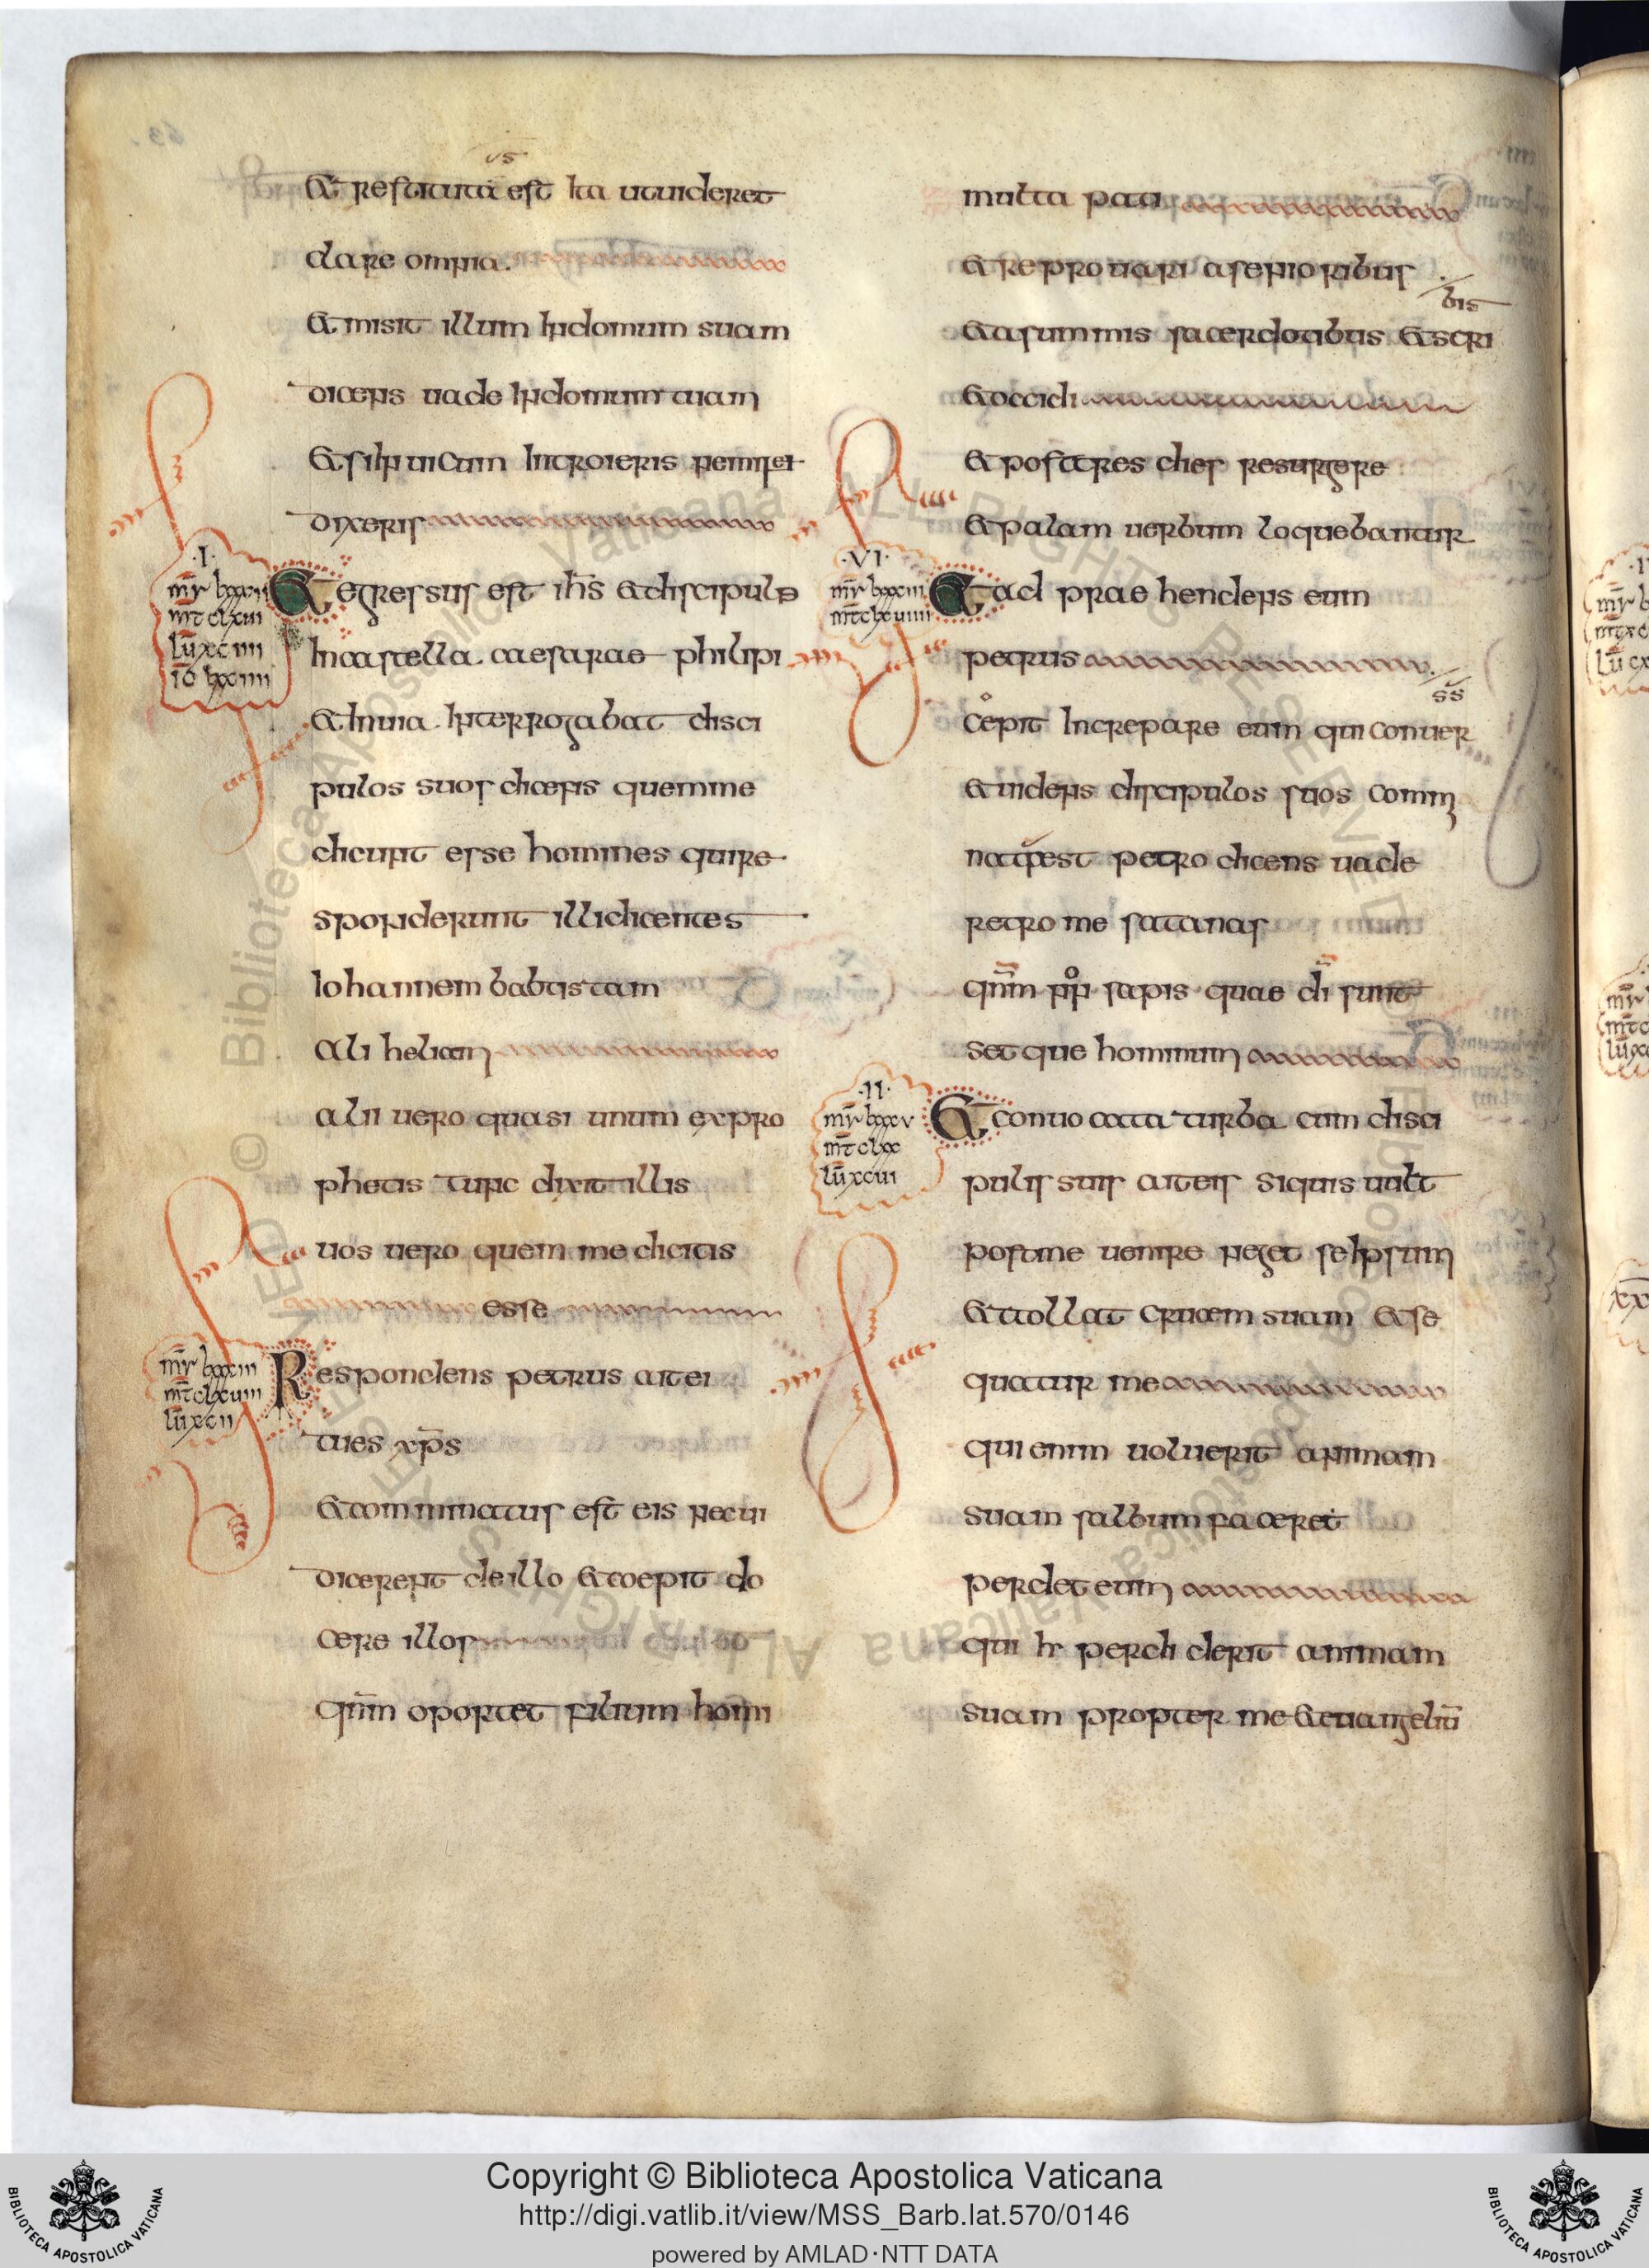 us
Et restituta est ita utuideret
clare omnia.
Et misit illum indomum suam
dicens uade indomum tuam
Et si in uicum introieris nemini
dixeris
.I.
mr lxxxii
mt clxiii
lu xciiii
io lxxiiii
Et egressus est ihs et discipuli
in castella caesarae philipi
Et in uia interrogabat disci
pulos suos dicens quem me
dicunt esse homines qui re
sponderunt illi dicentes
Iohannem babtistam
Ali heliam
alii uero quasi unum ex pro
phetis tunc dixit illis
uos uero quem me dicitis
esse
mr lxxxiii
mt clxviii
lu xcii
Respondens petrus ait ei
tu es xps
Et comminatus est eis ne cui
dicerent de illo et coepit do
cere illos
qnm oportet filium homi
multa pati
Et reprouari a senioribus
bis
Et a summis sacerdotibus et scri
Et occidi
Et post tres dies resurgere
Et palam uerbum loquebantur
.VI.
mr lxxxiiii
mt clxviiii
Et ad prae hendens eum
petrus
ss
cepit increpare eum qui conuer
Et uidens discipulos suos comm
natus est petro dicens uade
retro me satanas
qnm non sapis quae di sunt
set que hominum
.II.
mr lxxxv
mt clxx
lu xcvi
Et conuocata turba cum disci
pulis suis ait eis si quis uult
post me uenire neget se ipsum
Et tollat crucem suam et se
quatur me
qui enim uoluerit animam
suam salbum faceret
perdet eum
qui hr perdi derit animam
suam propter me et euangeliu
Copyright © Biblioteca Apostolica Vaticana
http://digi.vatlib.it/view/MSS_Barb.lat.570/0146
powered by AMLAD·NTT DATA
BIBLIOTECA APOSTOLICA VATICANA
BIBLIOTECA APOSTOLICA VATICANA